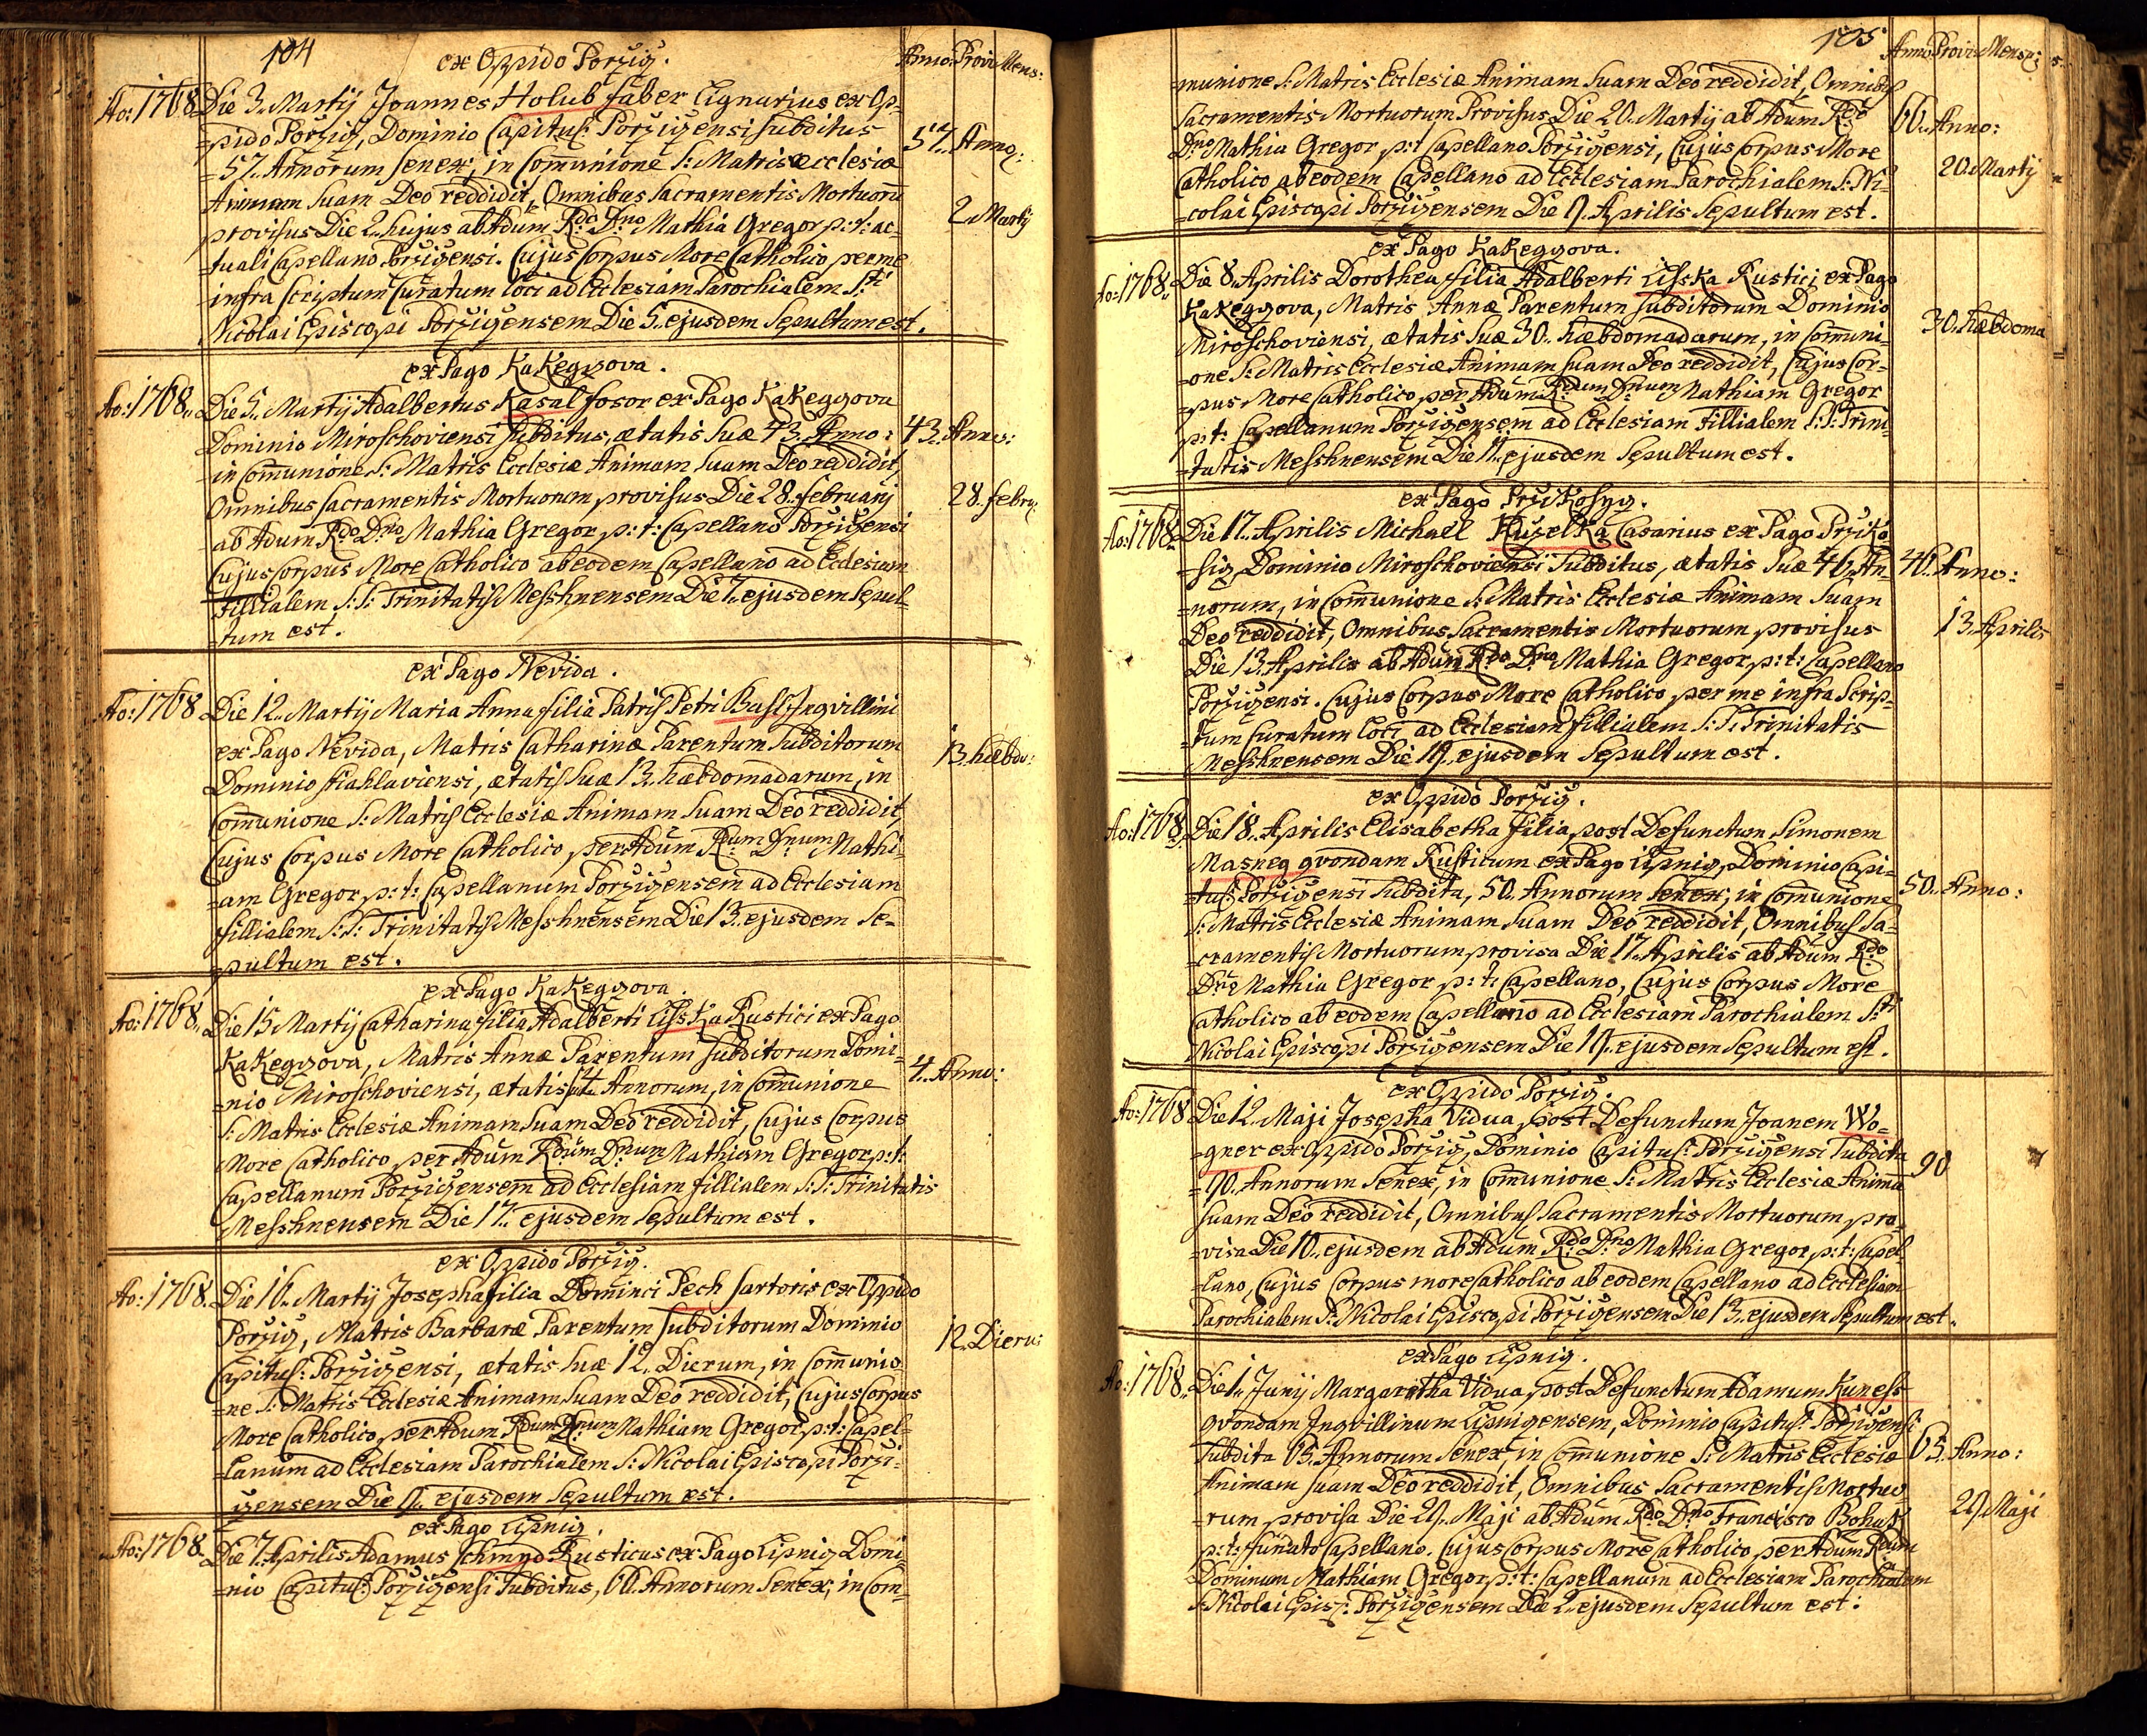 104
ex Oppido Porzig.
Anno: Provi: Mens:
Ao: 1768. Die 3. Martij Joannes Holub faber lignarius ex Op-
=pido Porzig, Dominio Capitul: Porzigensi subditus
=57. Annorum senex, in Communione S: Matris Ecclesiæ 57. Anno:
Animam Suam Deo reddidit, Omnibus Sacramentis Mortuorū
provisus Die 2. hujus ab Adum Rdo Dno Mathia Gregor p: t: ac- 2 Martij
=tuali Capellano Porzigensi. Cujus Corpus More Catholico per me
infra scriptum Curatum loci ad Ecclesiam Parochialem Sti
Nicolai Episcopi Porzigensem Die 5. ejusdem Sepultum est.
ex Pago Kakeggova.
Ao: 1768. Die 5. Martij Adalbertus Kasal fosor ex Pago Kakeggova
Dominio Miroschoviensi subditus, ætatis suæ 43. Anno: 43. Anno:
in Communione S: Matris Ecclesiæ Animam Suam Deo reddidit,
Omnibus Sacramentis Mortuorum provisus Die 28. februarij 28. febru:
ab Adum Rdo Dno Mathia Gregor p: t: Capellano Porzigensi
Cujus Corpus More Catholico ab eodem Capellano ad Ecclesiam
fillialem S: S: Trinitatis Messhnensem Die 7. ejusdem Sepul-
=tum est.
ex Pago Nevida.
Ao: 1768 Die 12. Martij Maria Anna filia Patris Petri Busl Inqvillini
ex Pago Nevida, Matris Catharinæ Parentum Subditorum
Dominio stiahlaviensi, ætatis suæ 13. hæbdomadarum, in 13. hæbdo:
Communione S: Matris Ecclesiæ Animam Suam Deo reddidit,
Cujus Corpus More Catholico per Adum Rdum Dnum Mathi-
=am Gregor p: t: Capellanum Porzigensem ad Ecclesiam
fillialem S: S: Trinitatis Messhnensem Die 13. ejusdem Se-
=pultum est.
ex Pago Kakeggova.
Ao: 1768. Die 15 Martij Catharina filia Adalberti Lisska Rustici ex Pago
Kakeggova, Matris Annæ Parentum subditorum Domi-
=nio Miroschoviensi, ætatis 4 Annorum, in Communione 4. Anno:
S: Matris Ecclesiæ Animam Suam Deo reddidit, Cujus Corpus
More Catholico per Adum Rdum Dnum Mathiam Gregor p: t:
Capellanum Porzigensem ad Ecclesiam fillialem S: S: Trinitatis
Messhnensem Die 17. ejusdem Sepultum est.
ex Oppido Porzig.
Ao: 1768. Die 16. Martij Josepha filia Dominci Pech Sartoris ex Oppido
Porzig, Matris Barbaræ Parentum Subditorum Dominio
Capitul: Porzigensi, ætatis suæ 12. Dierum, in Communio- 12. Dieru:
=ne S: Matris Ecclesiæ Animam Suam Deo reddidit, Cujus Corpus
More Catholico, per Adum Rdum Dnum Mathiam Gregor p: t: Capel-
=lanum ad Ecclesiam Parochialem S: Nicolai Episcopi Porzi-
gensem Die 17. ejusdem Sepultum est.
ex Pago Lipnig.
Ao: 1768. Die 7. Aprilis Adamus Schmyd Rusticus ex Pago Lipnig Domi-
=nio Capitul: Porzigensi Subditus, 66. Annorum Senex, in Com-
105
Anno: Provis: Mens:
=munione S: Matris Ecclesiæ Animam Suam Deo reddidit, Omnibus
Sacramentis Mortuorum Provisus Die 20. Martij ab Adum Rdo 66. Anno:
Dno Mathia Gregor p: t: Capellano Porzigensi, Cujus Corpus More 20. Martij
Catholico ab eodem Capellano ad Ecclesiam Parochialem S: Ni-
=colai Episcopi Porzigensem Die 9. Aprilis Sepultum est.
ex Pago Kakeggova.
Ao: 1768. Die 8. Aprilis Dorothea filia Adalberti Lisska Rustici ex Pago
Kakeggova, Matris Annæ Parentum Subditorum Dominio
Miroschoviensi, ætatis suæ 30. hæbdomadarum, in Communi- 30. hæbdoma
=one S: Matris Ecclesiæ Animam Suam Deo reddidit, Cujus Cor-
=pus More Catholico per Adum Rdum Dnum Mathiam Gregor
p: t: Capellanum Porzigensem ad Ecclesiam Fillialem S: S: Trini-
=tatis Messhnensem Die 9. ejusdem Sepultum est.
ex Pago Przikosyg.
Ao: 1768. Die 17. Aprilis Michael Kuzelka Casarius ex Pago Prziko-
=sig, Dominio Miroschoviensi Subditus, ætatis suæ 46. An- 46. Anno:
=norum, in Communione S: Matris Ecclesiæ Animam Suam
Deo reddidit, Omnibus Sacramentis Mortuorum provisus 13. Aprilis
Die 13. Aprilis ab Adum Rdo Dno Mathia Gregor, p: t: Capellano
Porzigensi. Cujus Corpus More Catholico, per me infra Scrip-
=tum Curatum loci ad Ecclesiam fillialem S: S: Trinitatis
Messhnensem Die 19. ejusdem Sepultum est.
ex Oppido Porzig.
Ao: 1768. Die 18. Aprilis Elisabetha filia post Defunctum Simonem
Masneg qvondam Rusticum ex Pago Lipnig, Dominio Capi-
=tul: Porzigensi Subdita, 50. Annorum Senex, in Comunione 50. Anno:
S: Matris Ecclesiæ Animam Suam Deo reddidit, Omnibus Sa-
=cramentis Mortuorum provisa Die 17. Aprilis ab Adum Rdo
Dno Mathia Gregor p: t: Capellano, Cujus Corpus More
Catholico ab eodem Capellano ad Ecclesiam Parochialem Sti
Nicolai Episcopi Porzigensem Die 19. ejusdem Sepultum est.
ex Oppido Porzig.
Ao: 1768 Die 12. Maji Josepha Vidua, post Defunctum Joanem Wo-
=gner ex Oppido Porzig, Dominio Capitul: Porzigensi Subdita
=90. Annorum Senex, in Comunione S: Matris Ecclesiæ Animā 90
Suam Deo reddidit, Omnibus Sacramentis Mortuorum pro-
=visa Die 10. ejusdem ab Adum Rdo Dno Mathia Gregor, p: t: Capel-
=lano, Cujus Corpus more Catholico ab eodem Capellano ad Ecclesiam
Parochialem S: Nicolai Episcopi Porzigensem Die 13. ejusdem Sepultum est.
ex Pago Lipnig.
Ao: 1768. Die 1. Junij Margaritha Vidua, post Defunctum Adamum Kuness
qvondam Inqvillinum Lipnigensem, Dominio Capitul: Porzigensi
Subdita 65. Annorum Senex, in Comunione S: Matris Ecclesiæ 65. Anno:
Animam Suam Deo reddidit, Omnibus Sacramentis Mortuo-
=rum provisa Die 29. Maji ab Adum Rdo Dno Francisco Bohuss 29. Maji
p: t: fundato Capellano. Cujus Corpus More Catholico, per Adum Rdum
Dominum Mathiam Gregor, p: t: Capellanum ad Ecclesiam Parochialem
S: Nicolai Episc: Porzigensem Die 2. ejusdem Sepultum est.